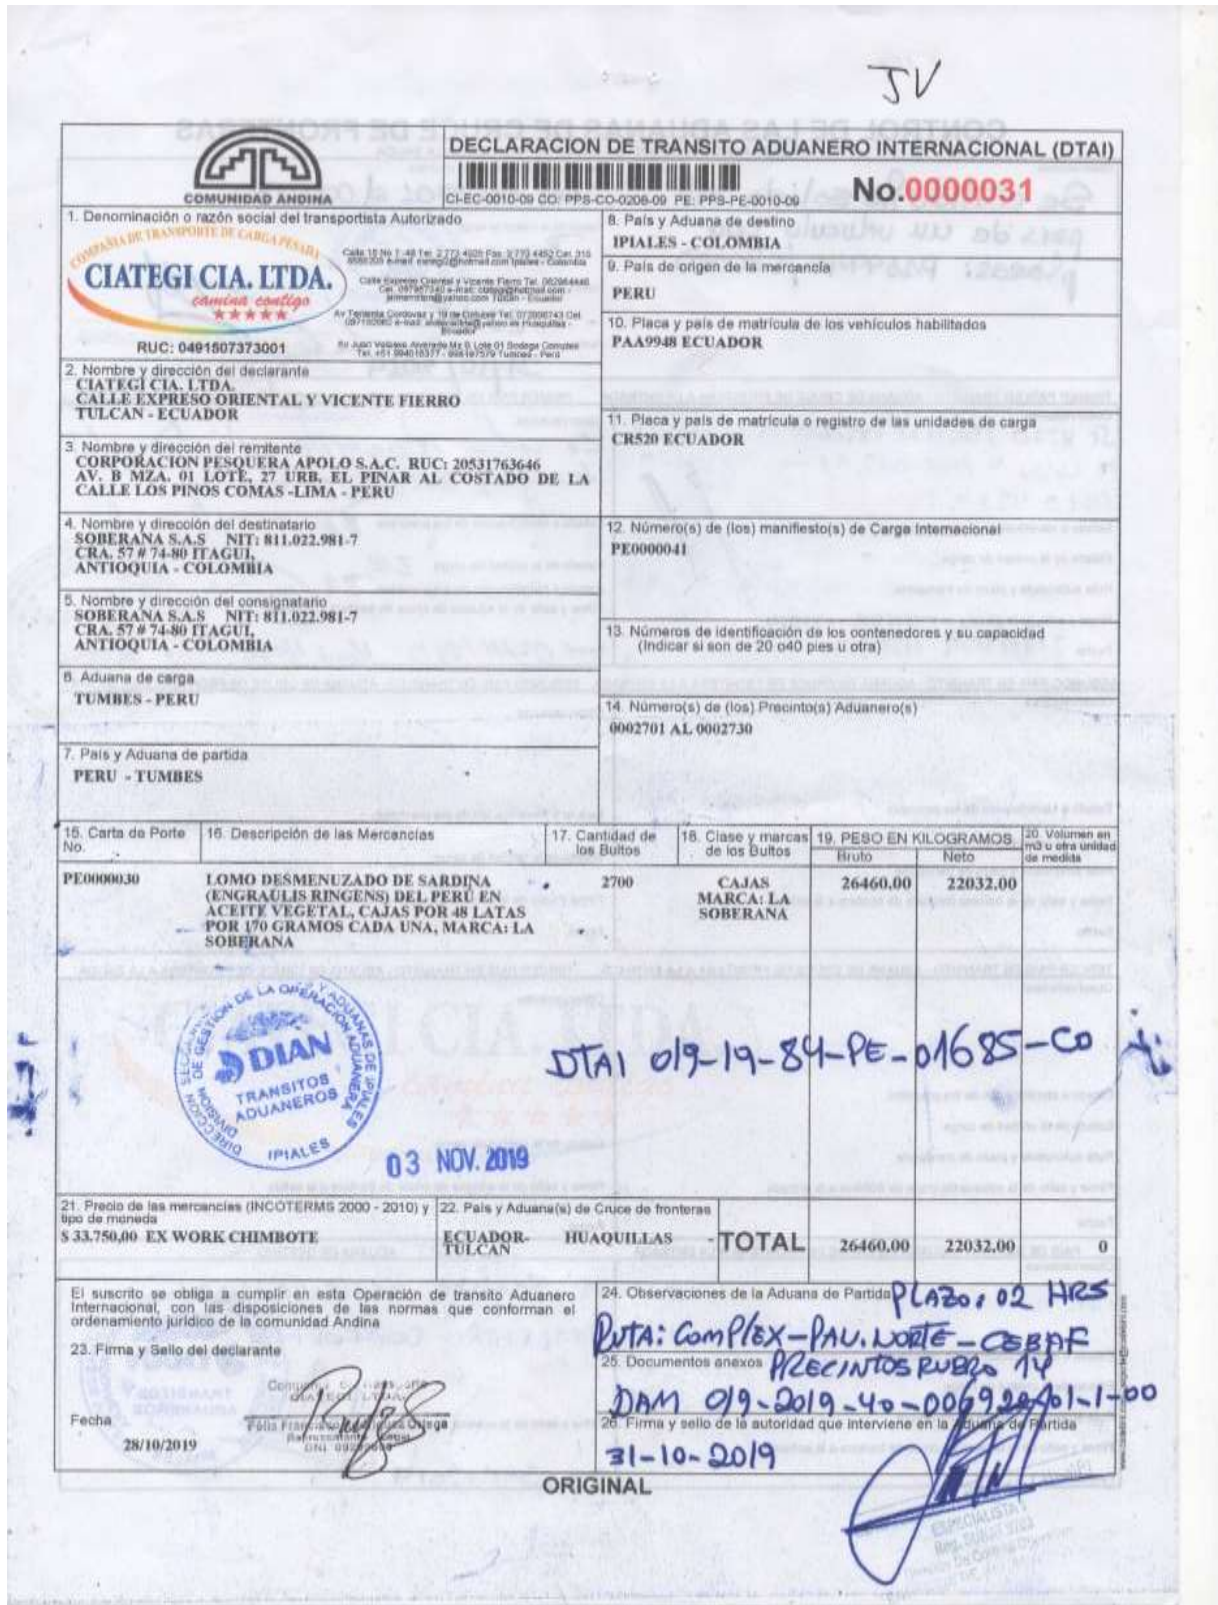 JV
COMUNIDAD ANDINA
DECLARACION DE TRANSITO ADUANERO INTERNACIONAL (DTAI)
CI-EC-0010-09 CO: PPS-CO-0208-09 PE: PPS-PE-0010-09
No.0000031
1. Denominación o razón social del transportista Autorizado
COMPAÑIA DE TRANSPORTE DE CARGA PESADA
CIATEGI CIA. LTDA.
camina contigo
RUC: 0491507373001
2. Nombre y dirección del declarante
CIATEGI CIA. LTDA.
CALLE EXPRESO ORIENTAL Y VICENTE FIERRO
TULCAN - ECUADOR
3. Nombre y dirección del remitente
CORPORACION PESQUERA APOLO S.A.C. RUC: 20531763646
AV. B MZA. 01 LOTE, 27 URB. EL PINAR AL COSTADO DE LA
CALLE LOS PINOS COMAS -LIMA - PERU
4. Nombre y dirección del destinatario
SOBERANA S.A.S NIT: 811.022.981-7
CRA. 57 # 74-80 ITAGUI,
ANTIOQUIA - COLOMBIA
5. Nombre y dirección del consignatario
SOBERANA S.A.S NIT: 811.022.981-7
CRA. 57 # 74-80 ITAGUI,
ANTIOQUIA - COLOMBIA
6. Aduana de carga
TUMBES - PERU
7. País y Aduana de partida
PERU - TUMBES
8. País y Aduana de destino
IPIALES - COLOMBIA
9. País de origen de la mercancía
PERU
10. Placa y país de matrícula de los vehículos habilitados
PAA9948 ECUADOR
11. Placa y país de matrícula o registro de las unidades de carga
CR520 ECUADOR
12. Número(s) de (los) manifiesto(s) de Carga Internacional
PE0000041
13. Números de identificación de los contenedores y su capacidad
(Indicar si son de 20 o40 pies u otra)
14. Número(s) de (los) Precinto(s) Aduanero(s)
0002701 AL 0002730
15. Carta de Porte No.
16. Descripción de las Mercancías
17. Cantidad de los Bultos
18. Clase y marcas de los Bultos
19. PESO EN KILOGRAMOS
Bruto Neto
20. Volumen en m3 u otra unidad de medida
PE0000030
LOMO DESMENUZADO DE SARDINA
(ENGRAULIS RINGENS) DEL PERÚ EN
ACEITE VEGETAL, CAJAS POR 48 LATAS
POR 170 GRAMOS CADA UNA, MARCA: LA
SOBERANA
2700
CAJAS
MARCA: LA
SOBERANA
26460.00 22032.00
DIRECCION SECCIONAL DE ADUANAS DE IPIALES
DIVISION DE GESTION DE LA OPERACION ADUANERA
DIAN
TRANSITOS
ADUANEROS
IPIALES
03 NOV. 2019
DTAI 019-19-84-PE-01685-CO
21. Precio de las mercancías (INCOTERMS 2000 - 2010) y
tipo de moneda
$ 33.750,00 EX WORK CHIMBOTE
22. País y Aduana(s) de Cruce de fronteras
ECUADOR- HUAQUILLAS -
TULCAN
TOTAL 26460.00 22032.00 0
El suscrito se obliga a cumplir en esta Operación de transito Aduanero
Internacional, con las disposiciones de las normas que conforman el
ordenamiento jurídico de la comunidad Andina
23. Firma y Sello del declarante
Fecha
28/10/2019
24. Observaciones de la Aduana de Partida
PLAZO: 02 HRS
RUTA: COMPLEX-PAU.NORTE-CEBAF
25. Documentos anexos
PRECINTOS RUBRO 14
26. Firma y sello de la autoridad que interviene en la Aduana de Partida
31-10-2019
ESPECIALISTA 1
ORIGINAL